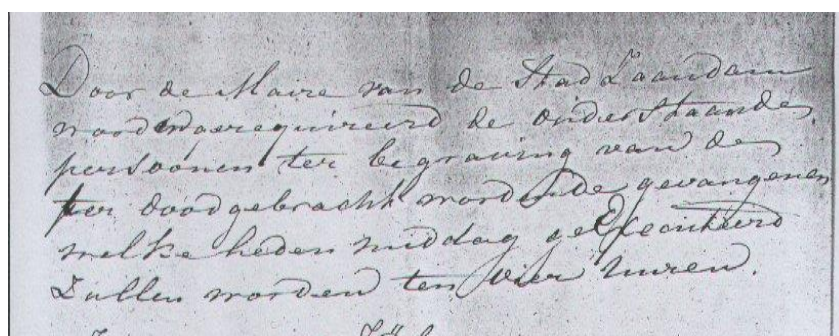 Door de Maire van de Stad Zaandam
worden gerequireerd de onderstaande
persoonen ter begraving van de
ter dood gebracht wordende gevangenen
welke heden middag geExecuteerd
Zullen worden ten vier uuren.